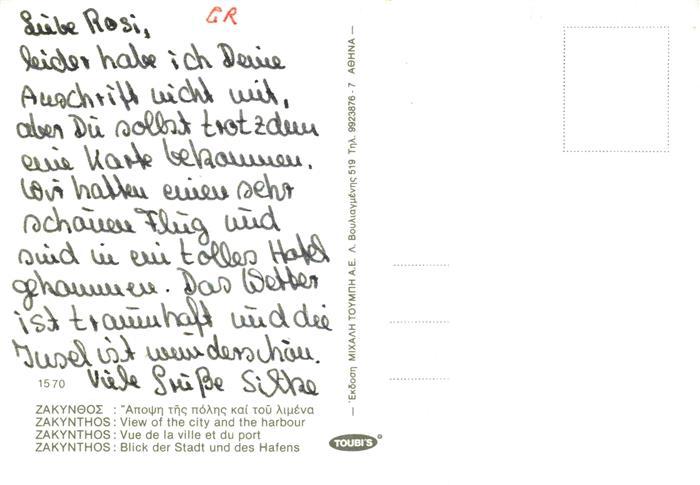 Liebe Rosi,
GR
leider habe ich Deine
Anschrift nicht mit,
aber Du sollst trotzdem
eine Karte bekommen.
Wir hatten einen sehr
schönen Flug und
sind in ein tolles Hotel
gekommen. Das Wetter
ist traumhaft und die
Insel ist wunderschön.
Viele Grüße Silke
1570
ΖΑΚΥΝΘΟΣ : Ἄποψη τῆς πόλης καί τοῦ λιμένα
ZAKYNTHOS : View of the city and the harbour
ZAKYNTHOS : Vue de la ville et du port
ZAKYNTHOS : Blick der Stadt und des Hafens
— Ἔκδοση ΜΙΧΑΛΗ ΤΟΥΜΠΗ Α.Ε. Λ. Βουλιαγμένης 519 Τηλ. 9923876 - 7 ΑΘΗΝΑ —
TOUBI'S